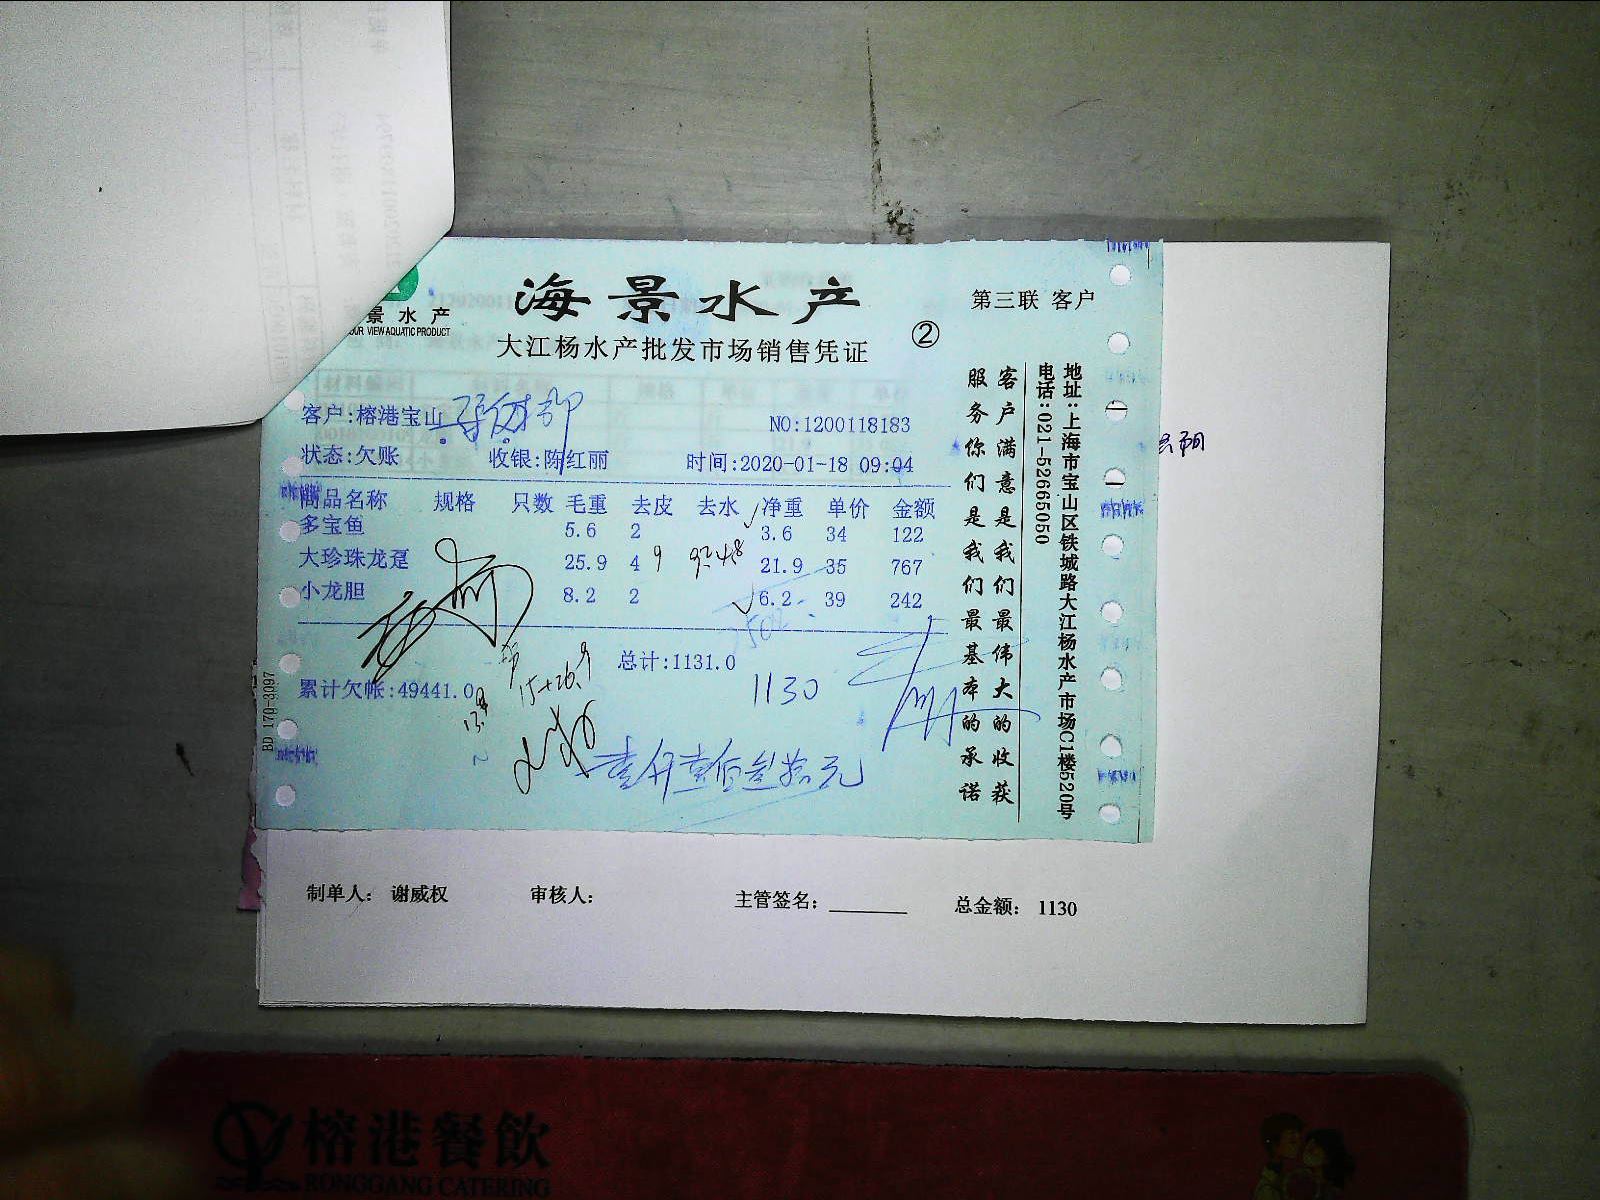 景水产
OUR VIEW AQUATIC PRODUCT
海景水产
大江杨水产批发市场销售凭证
②
第三联 客户
客户:榕港宝山
NO:1200118183
状态:欠账 收银:陈红丽 时间:2020-01-18 09:04
商品名称 规格 只数 毛重 去皮 去水 净重 单价 金额
多宝鱼 5.6 2 3.6 34 122
大珍珠龙趸 25.9 4 21.9 35 767
小龙胆 8.2 2 6.2 39 242
总计:1131.0
累计欠帐:49441.0
1130
15+26.9
壹仟壹佰叁拾元
客户满意是我们最伟大的收获
服务你们是我们最基本的承诺
地址:上海市宝山区铁城路大江杨水产市场C1楼520号
电话:021-52665050
BD 170-3097
制单人: 谢威权 审核人: 主管签名: 总金额: 1130
榕港餐飲
RONGGANG CATERING